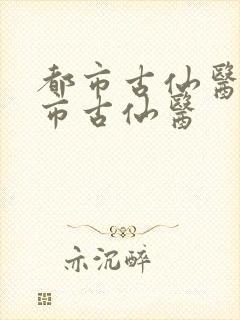 都市古仙醫
市古仙醫
亦沉醉